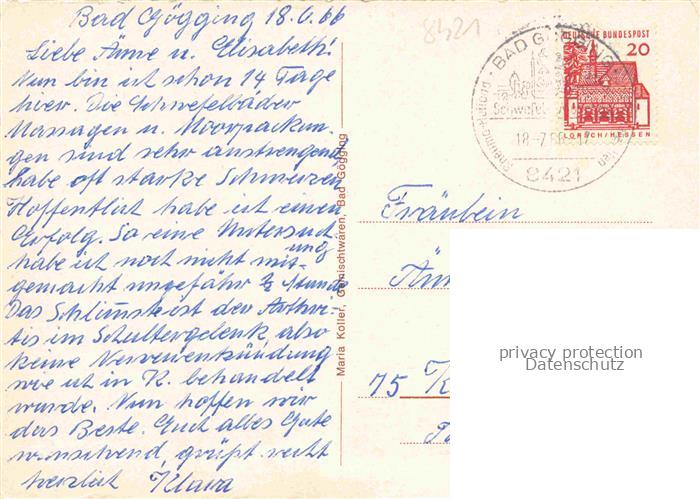 Bad Gögging 18.6.66
8421
Liebe Änne u. Elisabeth!
Nun bin ich schon 14 Tage
hier. Die Schwefelbäder
Massagen u. Moorpackun-
gen sind sehr anstrengend
habe oft starke Schmerzen
Hoffentlich habe ich einen
Erfolg. So eine Untersuch
ung
habe ich noch nicht mit-
gemacht ungefähr ½ Stunde
Das Schlimste ist der Arthri-
tis im Schultergelenk, also
keine Nervenentzündung
wie ich in K. behandelt
wurde. Nun hoffen wir
das Beste. Euch alles Gute
wünschend, grüßt recht
herzlich Klara
Maria Koller, Gemischtwaren, Bad Gögging
BAD GÖGGING
Schwefel
8421
DEUTSCHE BUNDESPOST
20
LORSCH/HESSEN
Fräulein
Änn
75 K
privacy protection
Datenschutz